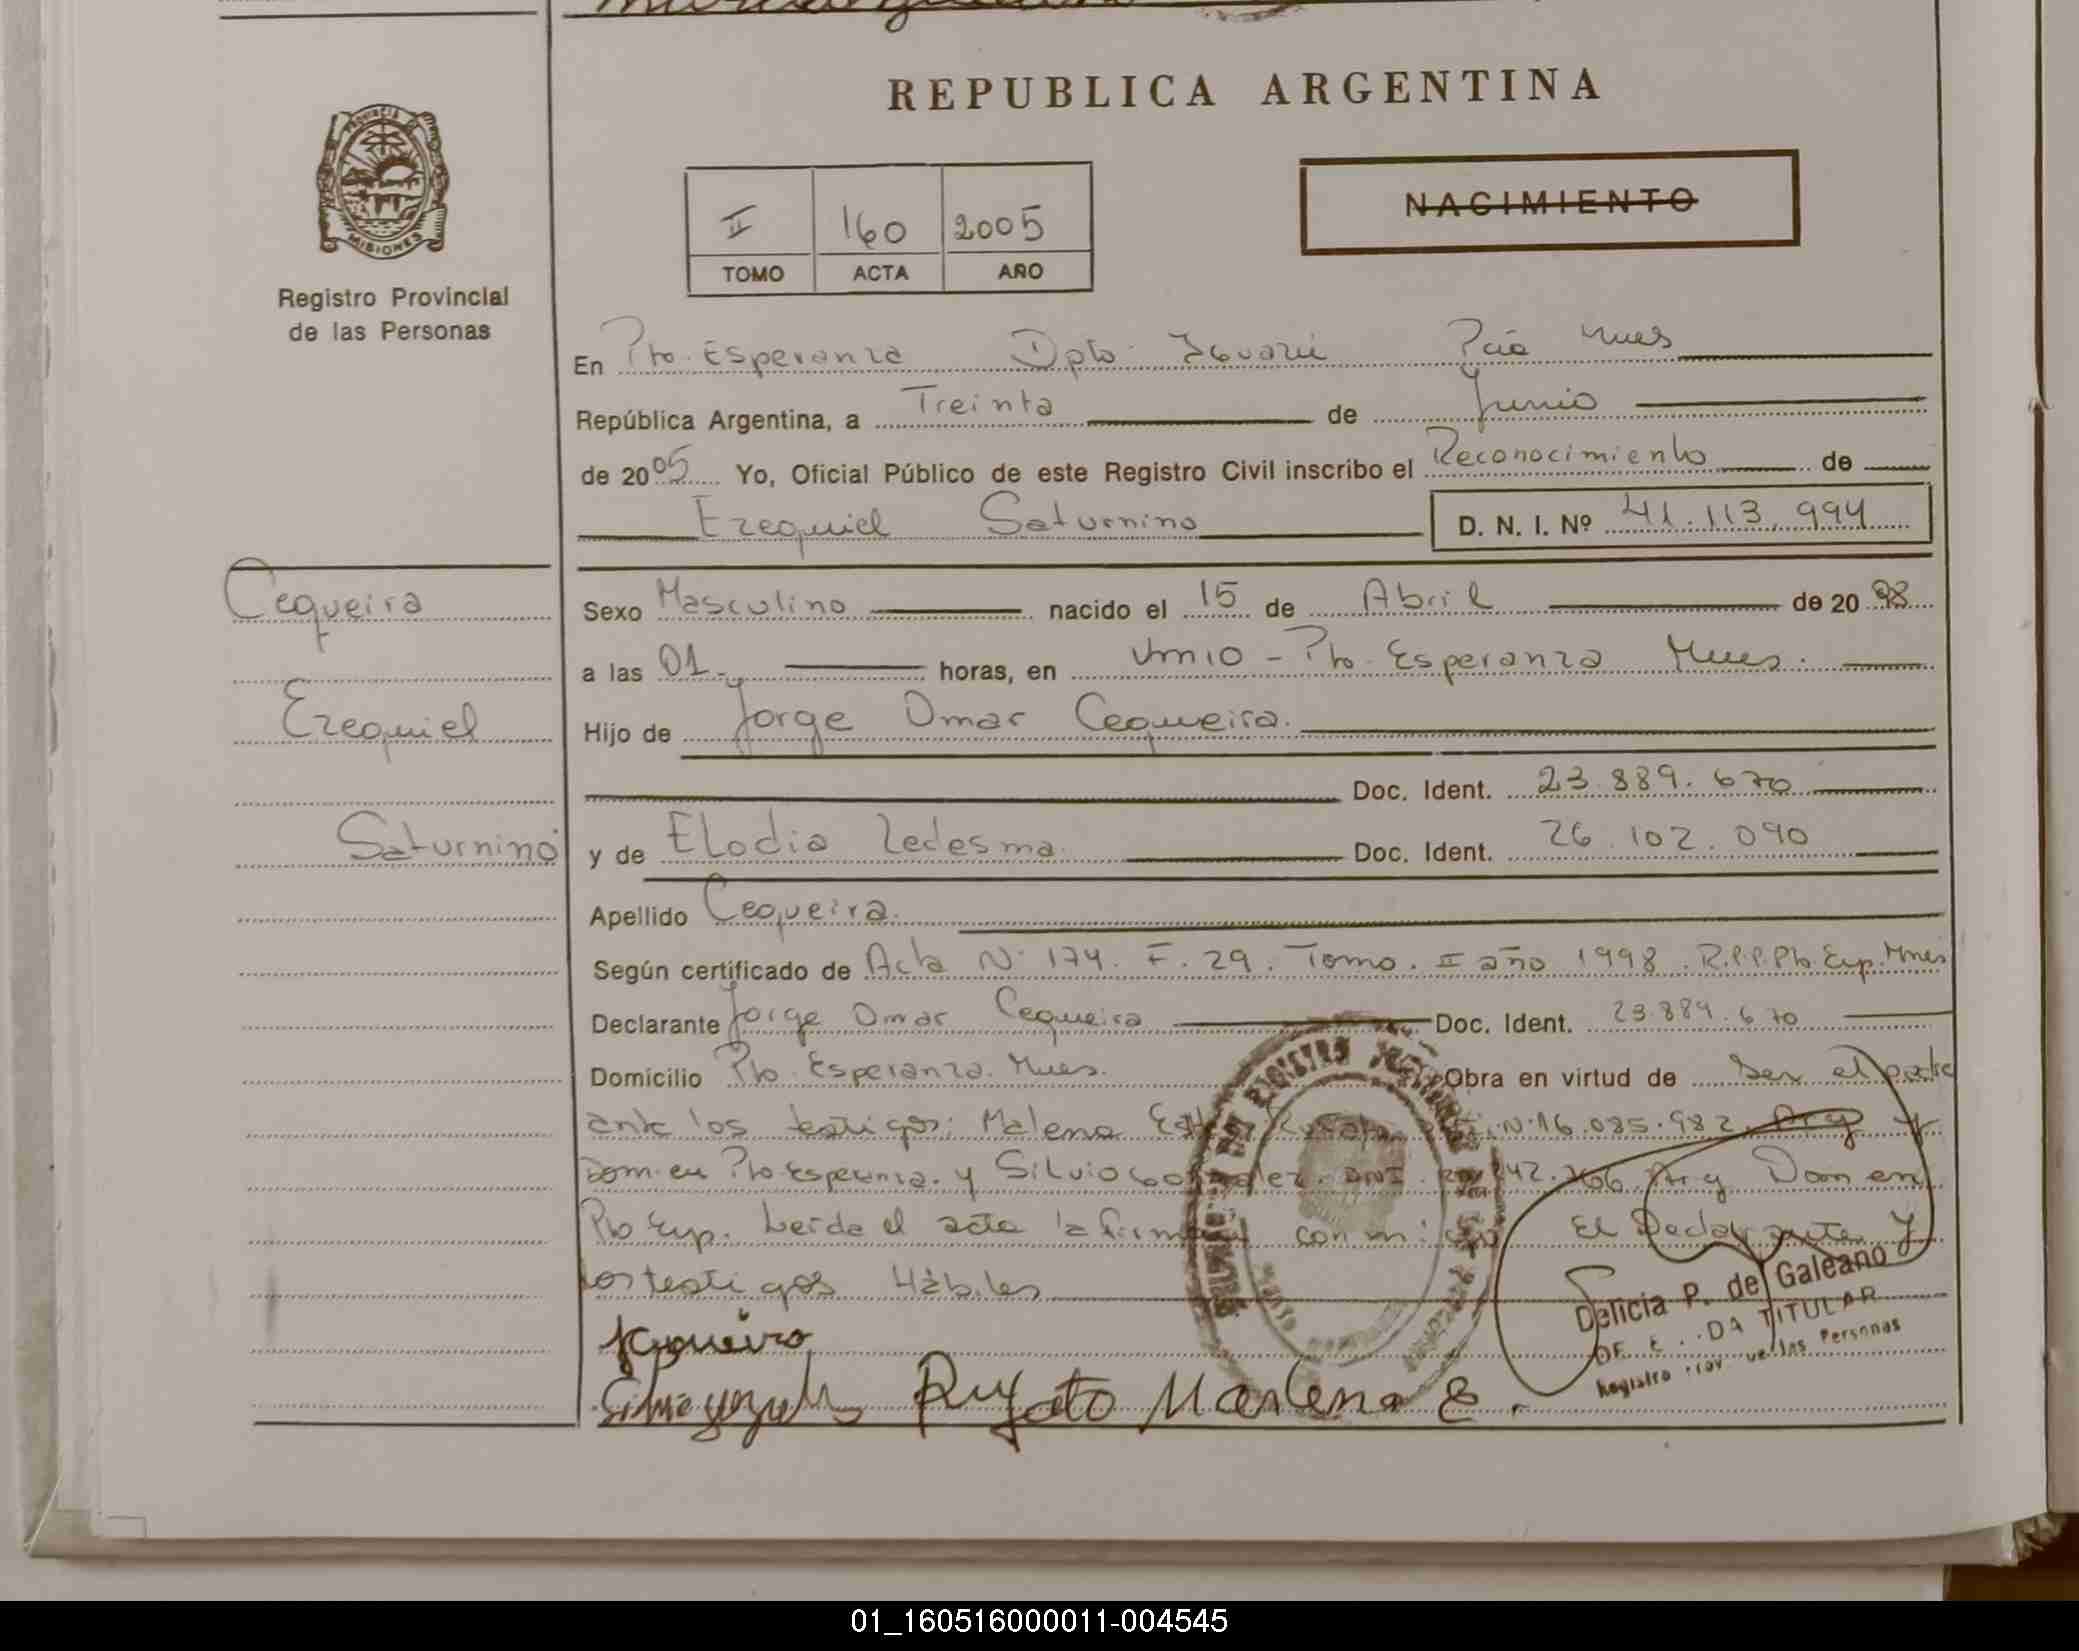 REPUBLICA ARGENTINA
PROVINCIA DE
MISIONES
Registro Provincial
de las Personas
II 160 2005
TOMO ACTA AÑO
NACIMIENTO
En Pto. Esperanza Dpto. Iguazú Pcia Mnes
República Argentina, a Treinta de Junio
de 2005 Yo, Oficial Público de este Registro Civil inscribo el Reconocimiento de
Ezequiel Saturnino D. N. I. Nº 41.113.994
Cequeira
Sexo Masculino nacido el 15 de Abril de 20 98
a las 01 horas, en Pto. Esperanza Mnes.
Ezequiel
Hijo de Jorge Omar Cequeira.
Doc. Ident. 23.889.670
Saturnino
y de Elodia Ledesma Doc. Ident. 26.102.090
Apellido Cequeira.
Según certificado de Acta Nº 174. F. 29. Tomo. II año 1998. R.P.P. Pto. Esp. Mnes
Declarante Jorge Omar Cequeira Doc. Ident. 23.889.670
Domicilio Pto. Esperanza. Mnes. Obra en virtud de Ser el padre
ante los testigos: Malena 16.085.982 Arg y
Dom. en Pto Esperanza. y Silvio Gonzalez. DNI. Arg Dom en
Pto Esp. Leida el acta la firman con migo El Declarante y
los testigos Hábiles
Delicia P. de Galeano
TITULAR
Registro Prov de las Personas
Rufato Marlena E.
01_160516000011-004545